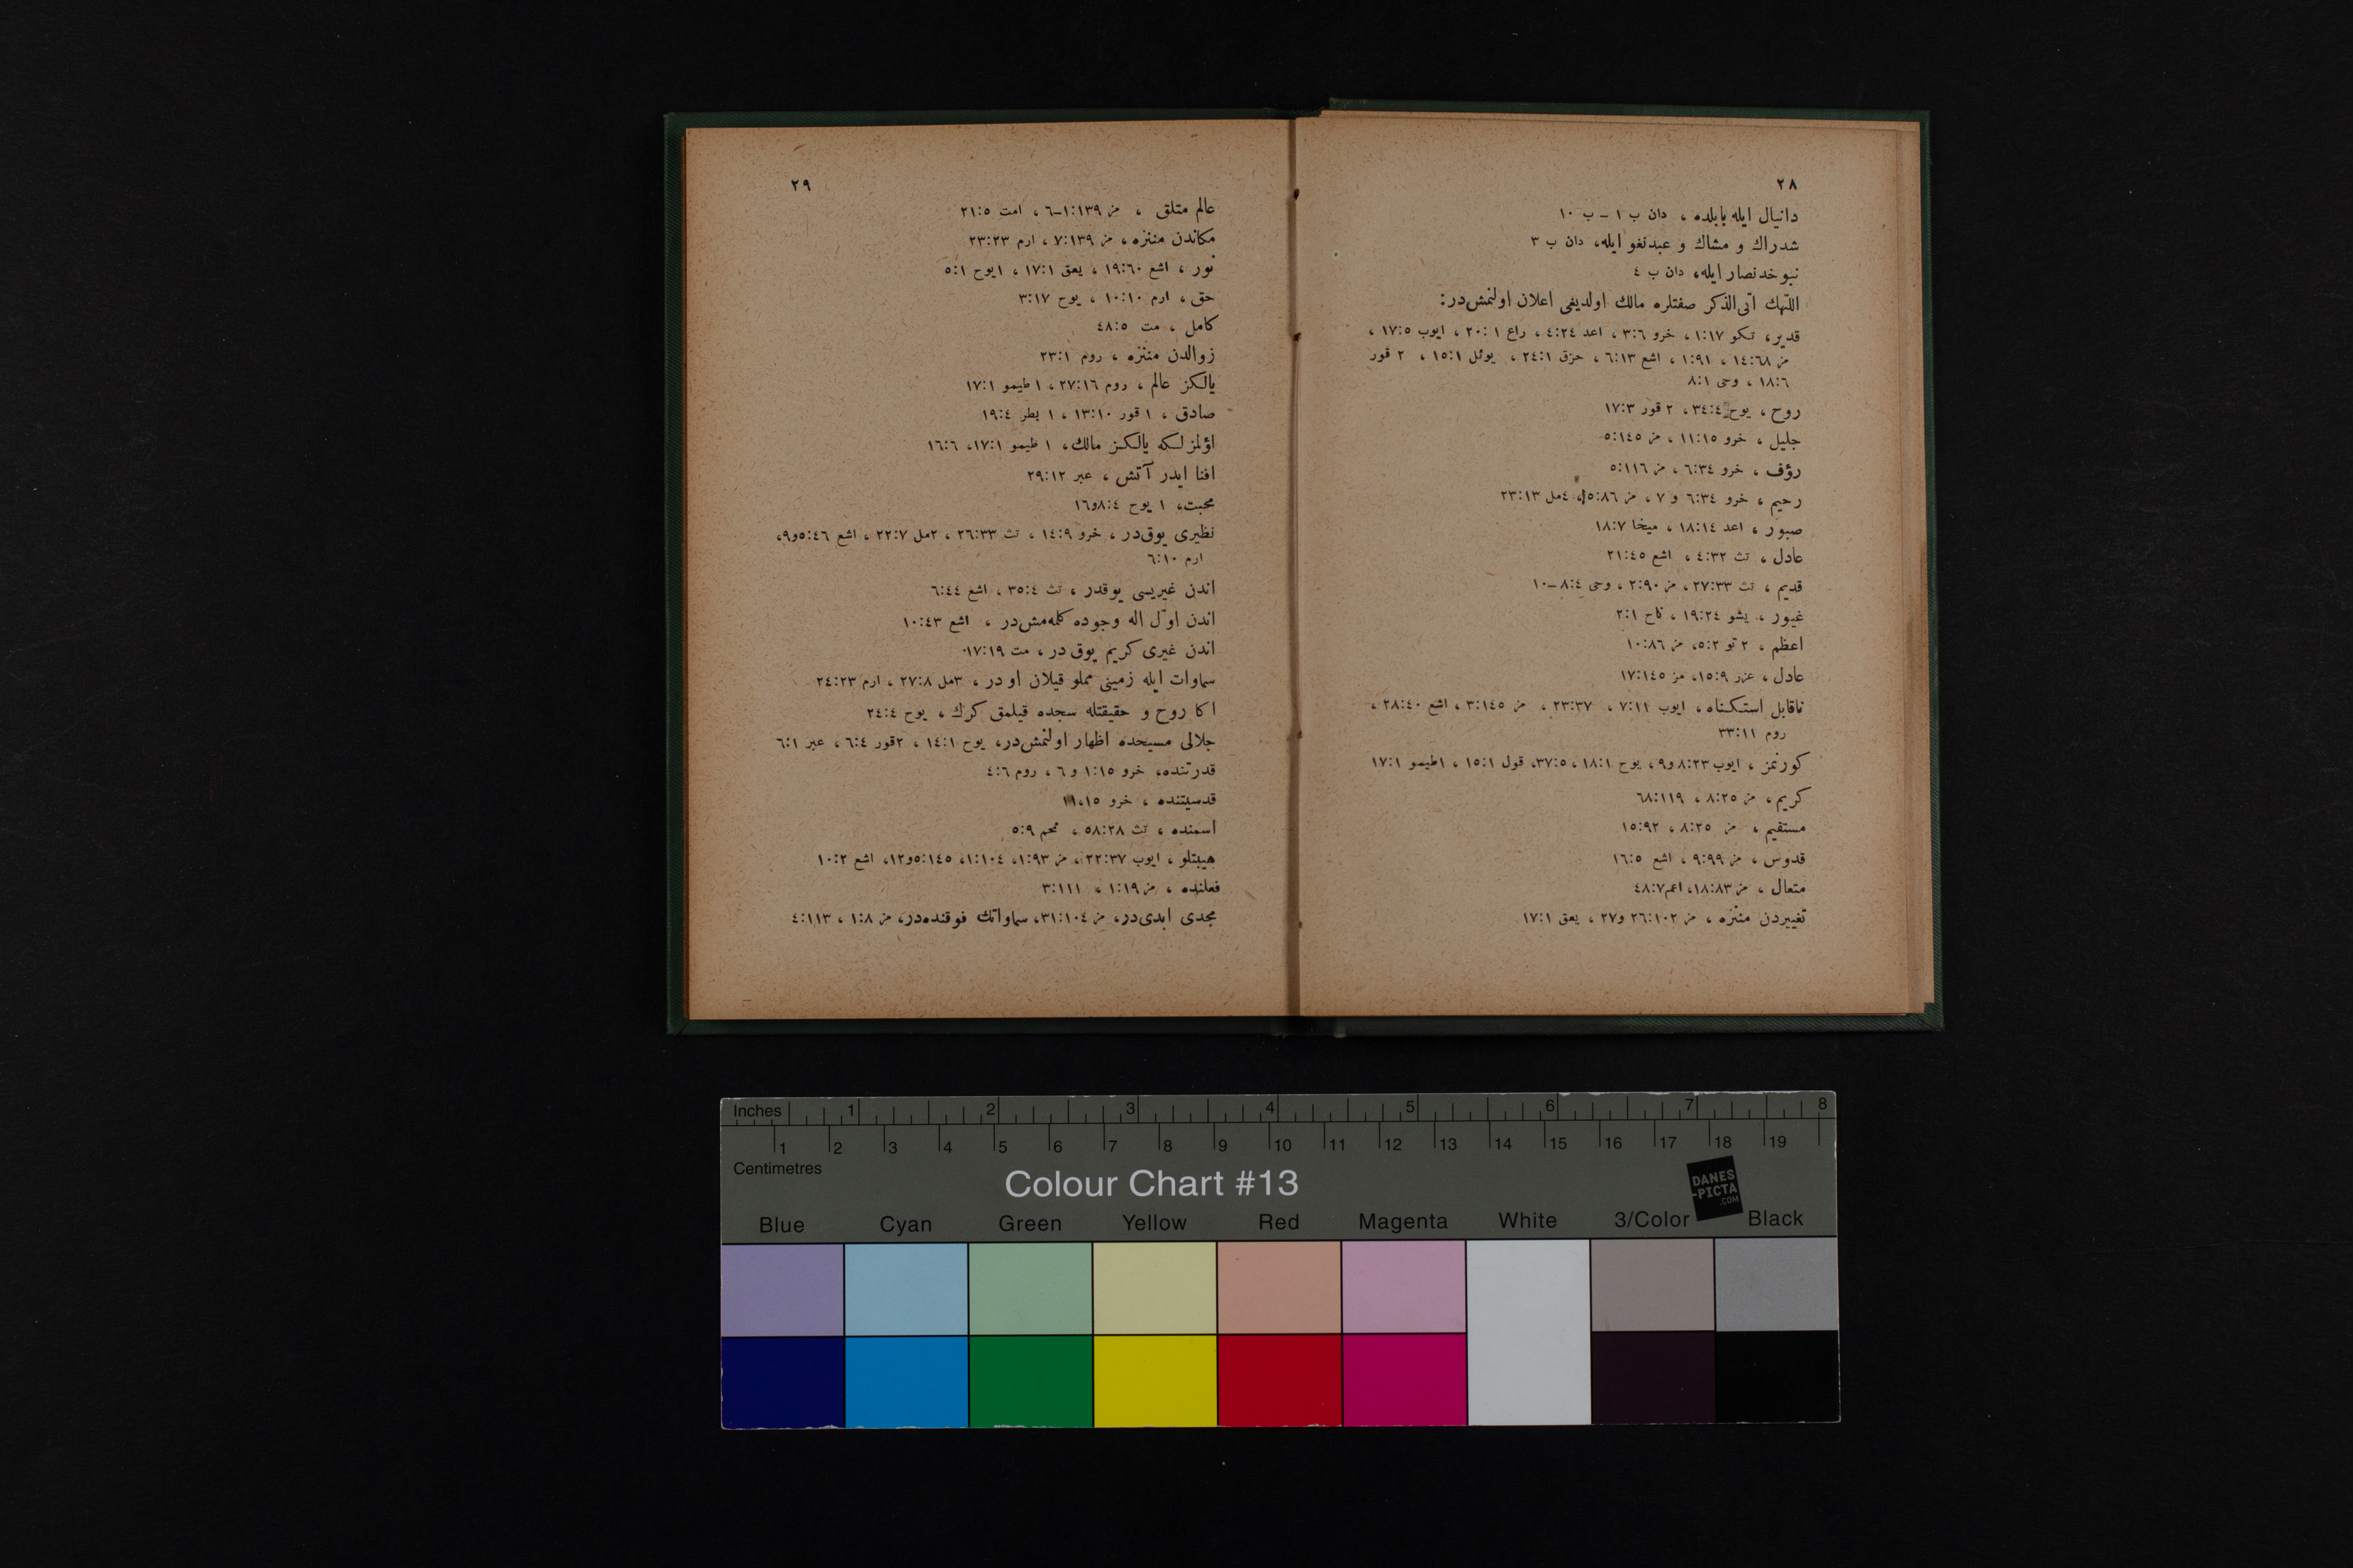 ٢٨
دانيال ايله بابلده ، دان ب ١ – ب ١٠
شدراك و مشاك و عبدنغو ايله، دان ب ٣
نبوخدنصار ايله، دان ب ٤
اللّٰهك آتى‌الذكر صفتلره مالك اولديغى اعلان اولنمش‌در:
قدير، تكو ١:١٧ ، خرو ٣:٦ ، اعد ٤:٢٤ ، راع ٢٠:١ ، ايوب ١٧:٥ ،
مز ١٤:٦٨ ، ١:٩١ ، اشع ٦:١٣ ، حزق ٢٤:١ ، يوئل ١٥:١ ، ٢ قور
١٨:٦ ، وحى ٨:١
روح ، يوح ٣٤:٤ ، ٢ قور ١٧:٣
جليل ، خرو ١١:١٥ ، مز ٥:١٤٥
رؤف ، خرو ٦:٣٤ ، مز ٥:١١٦
رحيم ، خرو ٦:٣٤ و ٧ ، مز ١٥:٨٦، ٤مل ٢٣:١٣
صبور ، اعد ١٨:١٤ ، ميخا ١٨:٧
عادل ، تث ٤:٣٢ ، اشع ٢١:٤٥
قديم ، تث ٢٧:٣٣ ، مز ٢:٩٠ ، وحى ٨:٤–١٠
غيور ، يشو ١٩:٢٤ ، ناح ٢:١
اعظم ، ٢ تو ٥:٢، مز ١٠:٨٦
عادل ، عزر ١٥:٩، مز ١٧:١٤٥
ناقابل استكناه ، ايوب ٧:١١ ، ٢٣:٣٧ ، مز ٣:١٤٥ ، اشع ٢٨:٤٠ ،
روم ٣٣:١١
كورنمز ، ايوب ٨:٢٣و٩ ، يوح ١٨:١ ، ٣٧:٥، قول ١٥:١ ، ١طيمو ١٧:١
كريم ، مز ٨:٢٥ ، ٦٨:١١٩
مستقيم ، مز ٨:٢٥ ، ١٥:٩٢
قدوس ، مز ٩:٩٩ ، اشع ١٦:٥
متعال ، مز ١٨:٨٣، اعم٤٨:٧
تغييردن منزه ، مز ٢٦:١٠٢ و٢٧ ، يعق ١٧:١
٢٩
عالم متلق ، مز ١:١٣٩–٦ ، امت ٢١:٥
مكاندن منزه ، مز ٧:١٣٩ ، ارم ٢٣:٢٣
نور ، اشع ١٩:٦٠ ، يعق ١٧:١ ، ١يوح ٥:١
حق ، ارم ١٠:١٠ ، يوح ٣:١٧
كامل ، مت ٤٨:٥
زوالدن منزه ، روم ٢٣:١
يالكز عالم ، روم ٢٧:١٦ ، ١ طيمو ١٧:١
صادق ، ١ قور ١٣:١٠ ، ١ بطر ١٩:٤
اؤلمزلكه يالكز مالك، ١ طيمو ١٧:١، ١٦:٦
افنا ايدر آتش ، عبر ٢٩:١٢
محبت، ١ يوح ٨:٤و١٦
نظيرى يوق‌در ، خرو ١٤:٩ ، تث ٢٦:٣٣ ، ٢مل ٢٢:٧ ، اشع ٥:٤٦و٩،
ارم ٦:١٠
اندن غيريسى يوقدر ، تث ٣٥:٤ ، اشع ٦:٤٤
اندن اوّل اله وجوده كلمه‌مش‌در ، اشع ١٠:٤٣
اندن غيرى كريم يوق در ، مت ١٧:١٩
سماوات ايله زمينى مملو قيلان او در ، ٣مل ٢٧:٨ ، ارم ٢٤:٢٣
اكا روح و حقيقتله سجده قيلمق كرك ، يوح ٢٤:٤
جلالى مسيحده اظهار اولنمش‌در، يوح ١٤:١ ، ٢قور ٦:٤ ، عبر ٦:١
قدرتنده، خرو ١:١٥ و ٦ ، روم ٤:٦
قدسيتنده ، خرو ١١،١٥
اسمنده ، تث ٥٨:٢٨ ، نحم ٥:٩
هيبتلو ، ايوب ٢٢:٣٧ ، مز ١:٩٣، ١:١٠٤، ٥:١٤٥و١٢، اشع ١٠:٢
فعلنده ، مز ١:١٩ ، ٣:١١١
مجدى ابدى‌در، مز ٣١:١٠٤، سماواتك فوقنده‌در، مز ١:٨ ، ٤:١١٣
Inches 1 2 3 4 5 6 7 8
1 2 3 4 5 6 7 8 9 10 11 12 13 14 15 16 17 18 19
Centimetres
Colour Chart #13
DANES
-PICTA
.COM
Blue Cyan Green Yellow Red Magenta White 3/Color Black